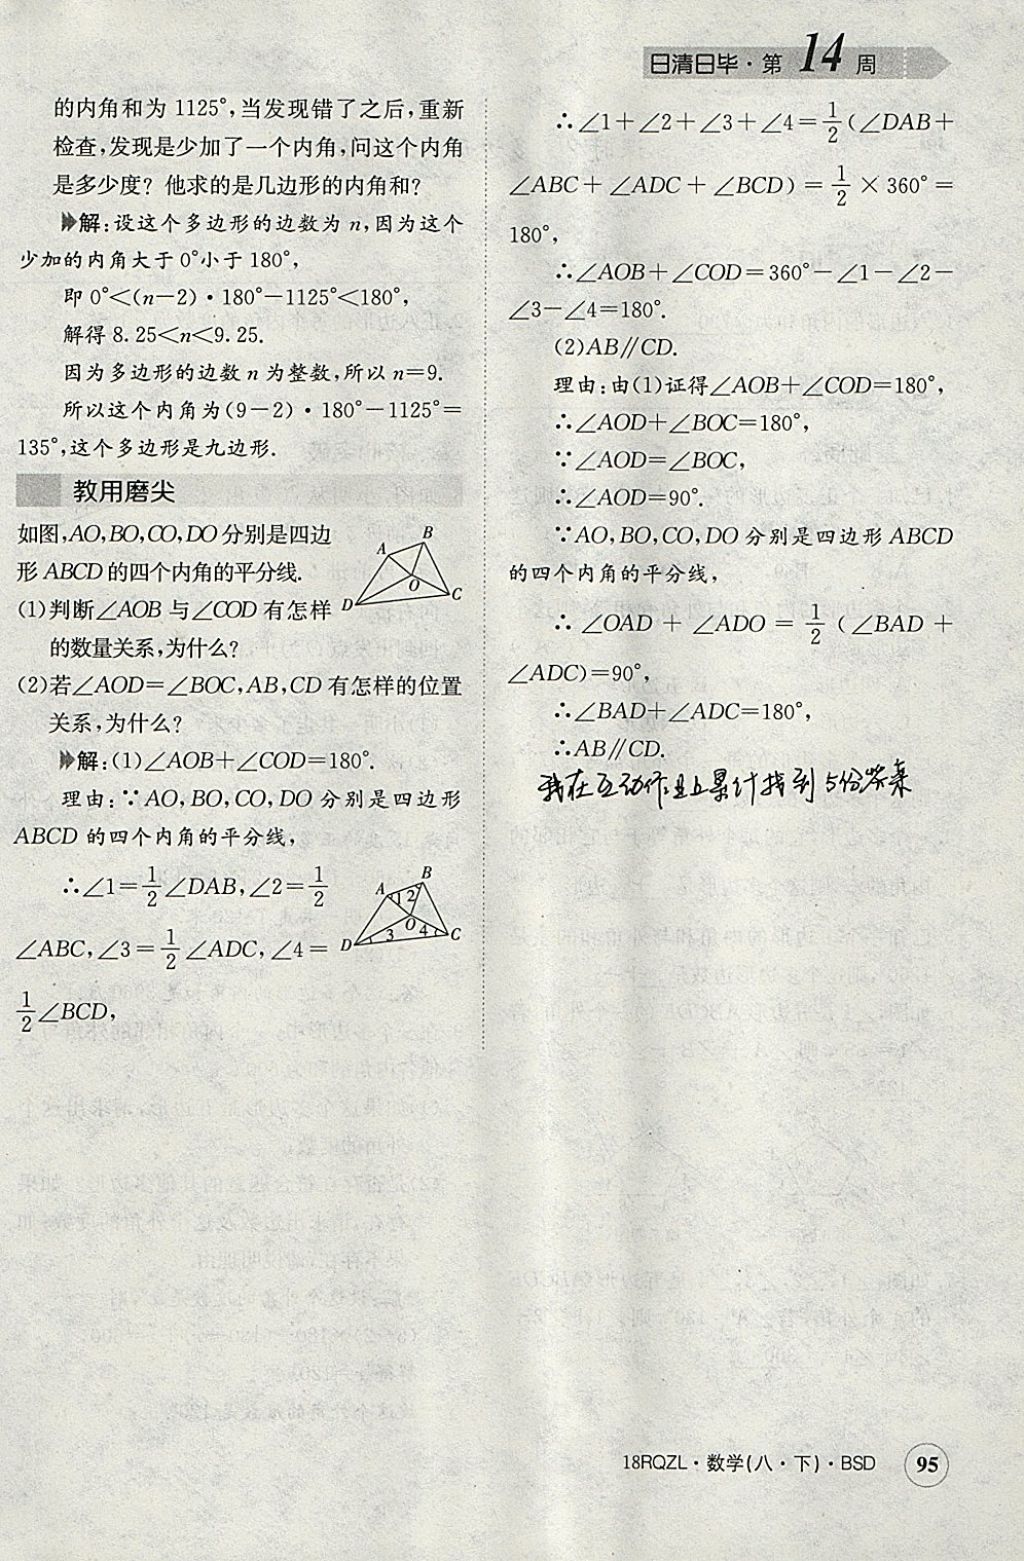 日清日毕·第14周
的内角和为 1125°,当发现错了之后,重新
检查,发现是少加了一个内角,问这个内角
是多少度? 他求的是几边形的内角和?
解:设这个多边形的边数为 n,因为这个
少加的内角大于 0°小于 180°,
即 0°<(n-2)·180°-1125°<180°,
解得 8.25<n<9.25.
因为多边形的边数 n 为整数,所以 n=9.
所以这个内角为(9-2)·180°-1125°=
135°,这个多边形是九边形.
教用磨尖
如图,AO,BO,CO,DO 分别是四边
形 ABCD 的四个内角的平分线.
(1)判断∠AOB 与∠COD 有怎样
的数量关系,为什么?
A B O D C
(2)若∠AOD=∠BOC,AB,CD 有怎样的位置
关系,为什么?
解:(1)∠AOB+∠COD=180°.
理由:∵AO,BO,CO,DO 分别是四边形
ABCD 的四个内角的平分线,
∴∠1=1/2∠DAB,∠2=1/2
∠ABC,∠3=1/2∠ADC,∠4=
1/2∠BCD,
A B 1 2 O D 3 4 C
∴∠1+∠2+∠3+∠4=1/2(∠DAB+
∠ABC+∠ADC+∠BCD)=1/2×360°=
180°,
∴∠AOB+∠COD=360°-∠1-∠2-
∠3-∠4=180°.
(2)AB∥CD.
理由:由(1)证得∠AOB+∠COD=180°,
∴∠AOD+∠BOC=180°,
∵∠AOD=∠BOC,
∴∠AOD=90°.
∵AO,BO,CO,DO 分别是四边形 ABCD
的四个内角的平分线,
∴∠OAD+∠ADO=1/2(∠BAD+
∠ADC)=90°,
∴∠BAD+∠ADC=180°,
∴AB∥CD.
我在互动作业上累计找到5份答案
18RQZL·数学(八·下)·BSD 95